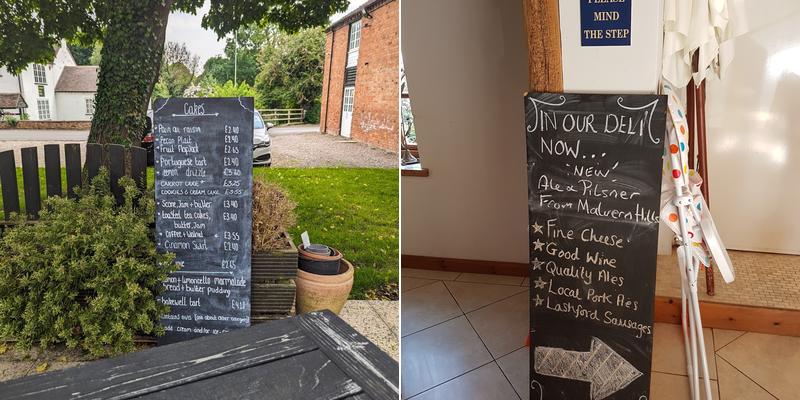 Cakes
Pain au raisin £2.40
Pecan Plait £2.40
Fruit flapjack £2.65
Portuguese tart £2.40
lemon drizzle
CARROT CAKE
COOKIES & CREAM CAKE £3.55
Scone, Jam + butter £3.40
toasted tea cakes, £3.40
butter, Jam
Coffee + Walnut £3.55
Cinamon Swirl £2.40
£2.65
lemon + limoncello marmalade
bread + butter pudding
bakewell tart
PLEASE
MIND
THE STEP
IN OUR DELI
NOW...
NEW!
Ale & Pilsner
From Malvern Hills
Fine Cheese
Good Wine
Quality Ales
Local Pork Pies
Lashford Sausages